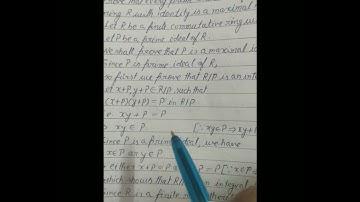 Prove that every prime
ring R with identity is a maximal
Let R be a finite commutative ring w
Let P be a prime ideal of R.
We shall prove that P is a maximal
Since P is prime ideal of R,
So first we prove that R/P is an int
Let x+P, y+P ∈ R/P such that
(x+P)(y+P) = P in R/P
xy + P = P
xy ∈ P [∵ xy ∈ P ⇒ xy +
Since P is a prime ideal, we have
x ∈ P or y ∈ P
either x+P = P or y+P = P [∵
which shows that R/P is an integral
R is a finite